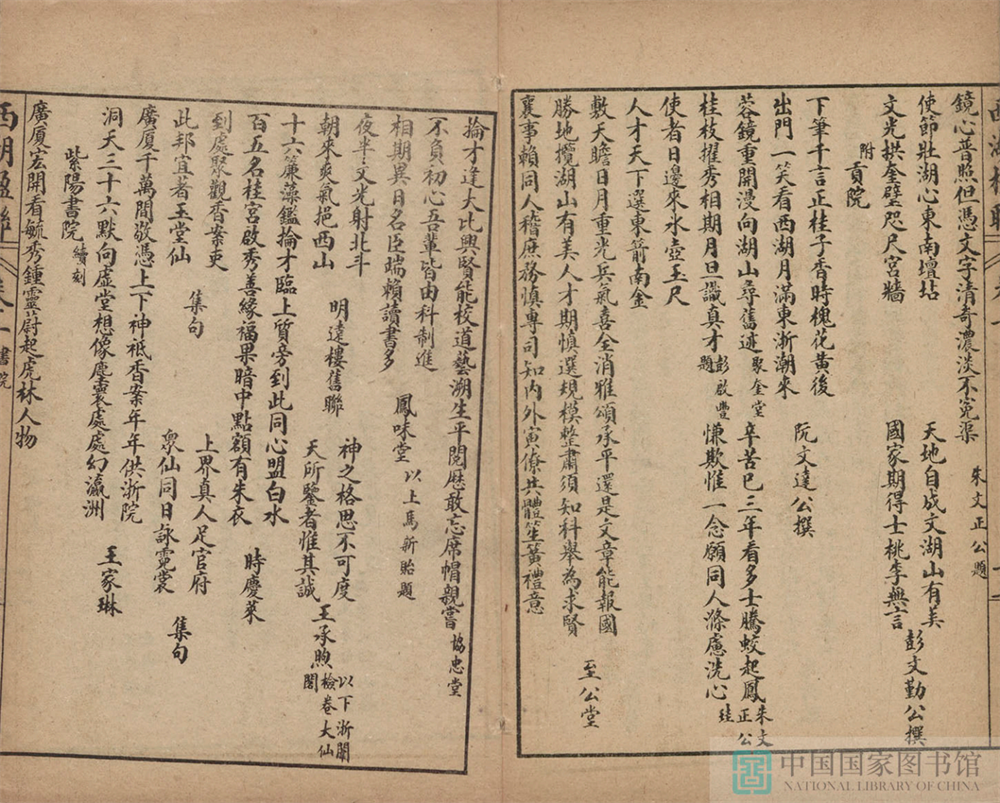 鏡心普照但憑文字清奇濃淡不冤渠　朱文正公題
使節壯湖心東南壇坫　天地自成文湖山有美
文光拱奎璧咫尺宮牆　國家期得士桃李無言　彭文勤公撰
附貢院
下筆千言正桂子香時槐花黃後
出門一笑看西湖月滿東浙潮來　阮文達公撰
蓉鏡重開漫向湖山尋舊迹　聚奎堂　辛苦已三年看多士騰蛟起鳳　朱文正公
桂枝擢秀相期月旦識真才　彭啟豐題　慊欺惟一念願同人滌慮洗心
使者日邊來氷壺玉尺
人才天下選東箭南金
敷天瞻日月重光兵氣喜全消雅頌承平還是文章能報國
勝地攬湖山有美人才期慎選規模整肅須知科舉為求賢　至公堂
襄事賴同人稽庶務慎專司知內外寅僚共體笙簧禮意
掄才逢大比興賢能校道藝溯生平閱歷敢忘席帽親嘗　協忠堂
不負初心吾輩皆由科制進
相期異日名臣端賴讀書多　鳳味堂　以上馬新貽題
夜半文光射北斗
朝來爽氣挹西山　明遠樓舊聯　神之格思不可度
十六簾藻鑑掄才臨上質旁到此同心盟白水　天所鑒者惟其誠　王承煦　以下浙闈檢卷大仙閣
百五名桂宮啟秀善緣福果暗中點額有朱衣　時慶萊
到處聚觀香案吏
此邦宜著玉堂仙　集句　上界真人足官府
廣厦千萬間敬憑上下神祗香案年年供浙院　衆仙同日詠霓裳　集句
洞天三十六默向虛堂想像塵寰處處幻瀛洲　王家琳
紫陽書院　續刻
廣厦宏開看毓秀鍾靈蔚起虎林人物
西湖楹聯　卷一　書院
中国国家图书馆
NATIONAL LIBRARY OF CHINA